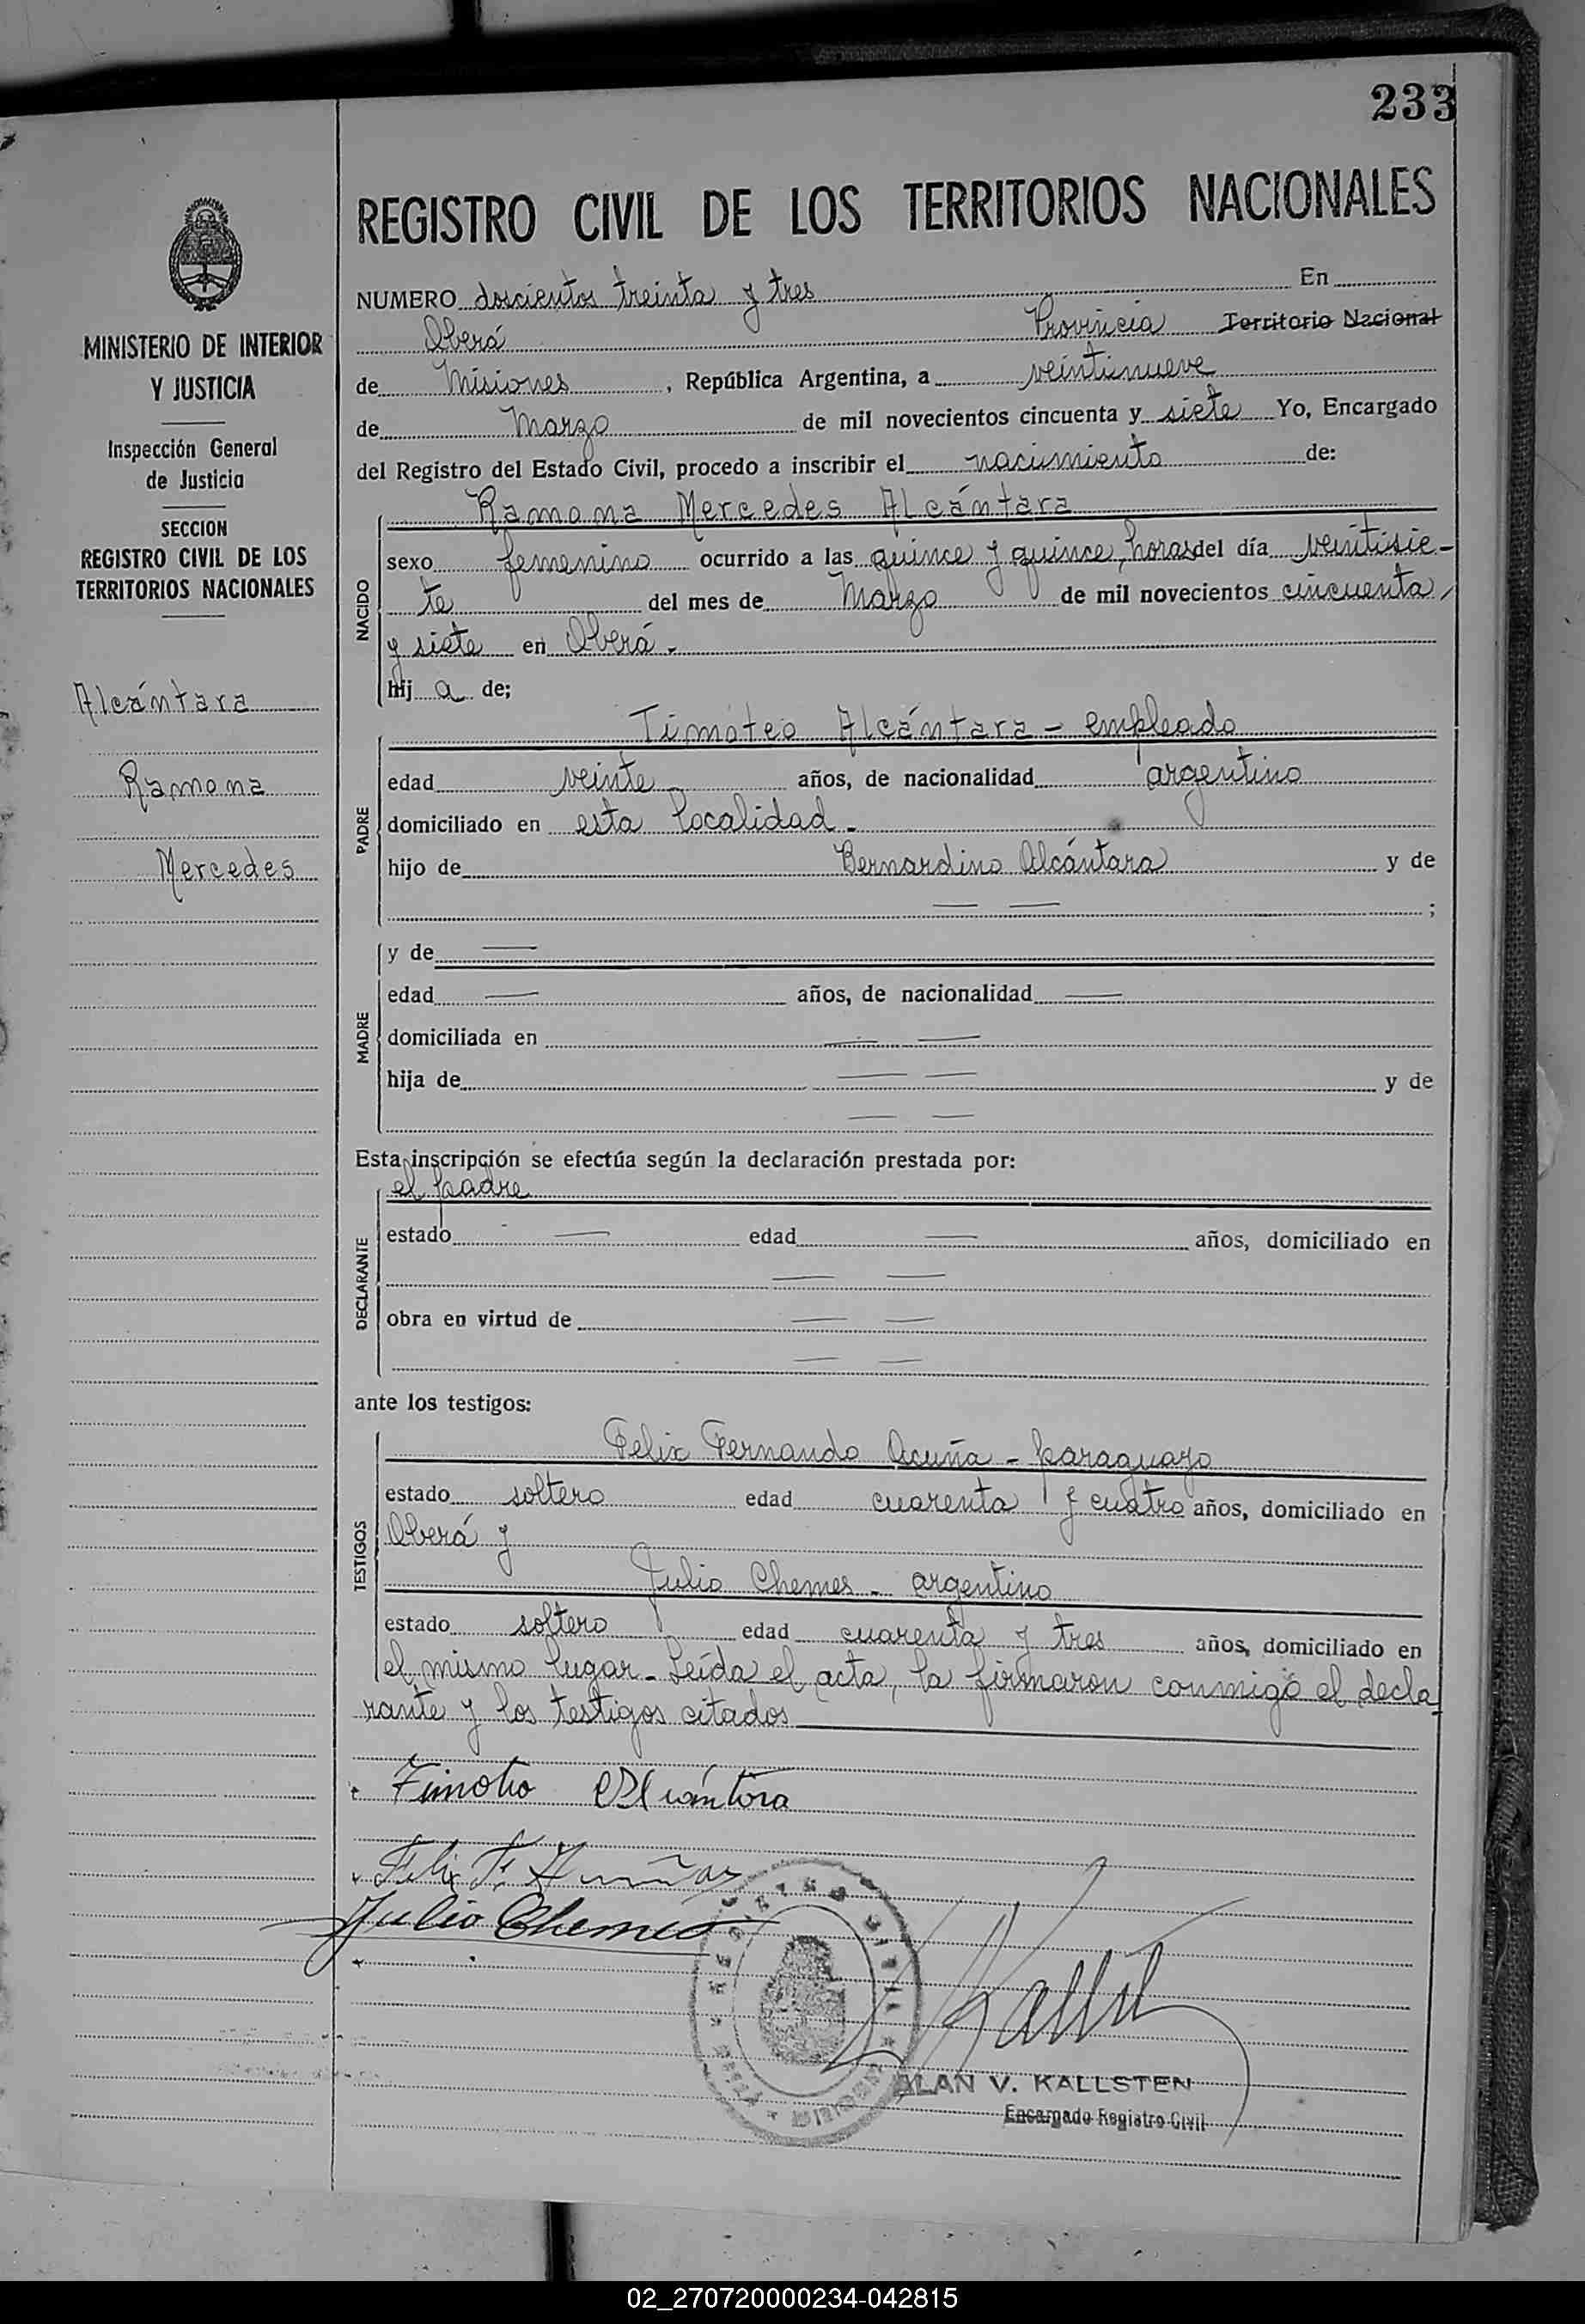 233
REGISTRO CIVIL DE LOS TERRITORIOS NACIONALES
MINISTERIO DE INTERIOR
Y JUSTICIA
Inspección General
de Justicia
SECCION
REGISTRO CIVIL DE LOS
TERRITORIOS NACIONALES
Alcántara
Ramona
Mercedes
NUMERO doscientos treinta y tres En
Oberá Provincia Territorio Nacional
de Misiones, República Argentina, a veintinueve
de Marzo de mil novecientos cincuenta y siete Yo, Encargado
del Registro del Estado Civil, procedo a inscribir el nacimiento de:
NACIDO
Ramona Mercedes Alcántara
sexo femenino ocurrido a las quince y quince, horas del día veintisie-
te del mes de Marzo de mil novecientos cincuenta
y siete en Oberá.
hij a de;
PADRE
Timoteo Alcántara - empleado
edad veinte años, de nacionalidad argentino
domiciliado en esta localidad.
hijo de Bernardino Alcántara y de
— — ;
MADRE
y de —
edad — años, de nacionalidad —
domiciliada en — —
hija de — — y de
— —
Esta inscripción se efectúa según la declaración prestada por:
DECLARANTE
el padre
estado — edad — años, domiciliado en
— —
obra en virtud de — —
— —
ante los testigos:
TESTIGOS
Felix Fernando Acuña - paraguayo
estado soltero edad cuarenta y cuatro años, domiciliado en
Oberá y
Julio Chemes - argentino
estado soltero edad cuarenta y tres años, domiciliado en
el mismo lugar - Leída el acta, la firmaron conmigo el decla
rante y los testigos citados
Timoteo Alcántara
Felix F. Acuña
Julio Chemes
REGISTRO CIVIL
ALAN V. KALLSTEN
Encargado Registro Civil
02_270720000234-042815